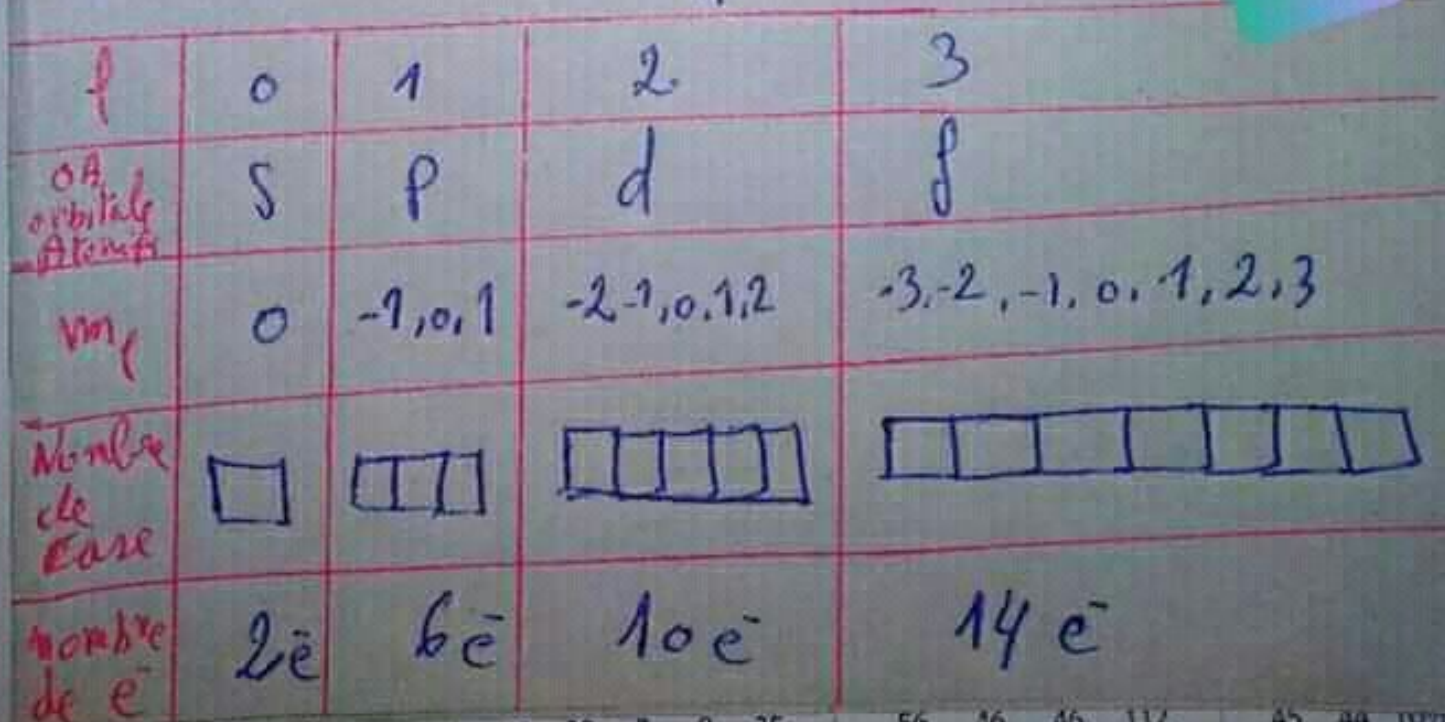 l 0 1 2 3
OA orbitale Atomique s p d f
ml 0 -1,0,1 -2-1,0,1,2 -3,-2,-1,0,1,2,3
Nombre de Case
nombre de e- 2e- 6e- 10e- 14e-